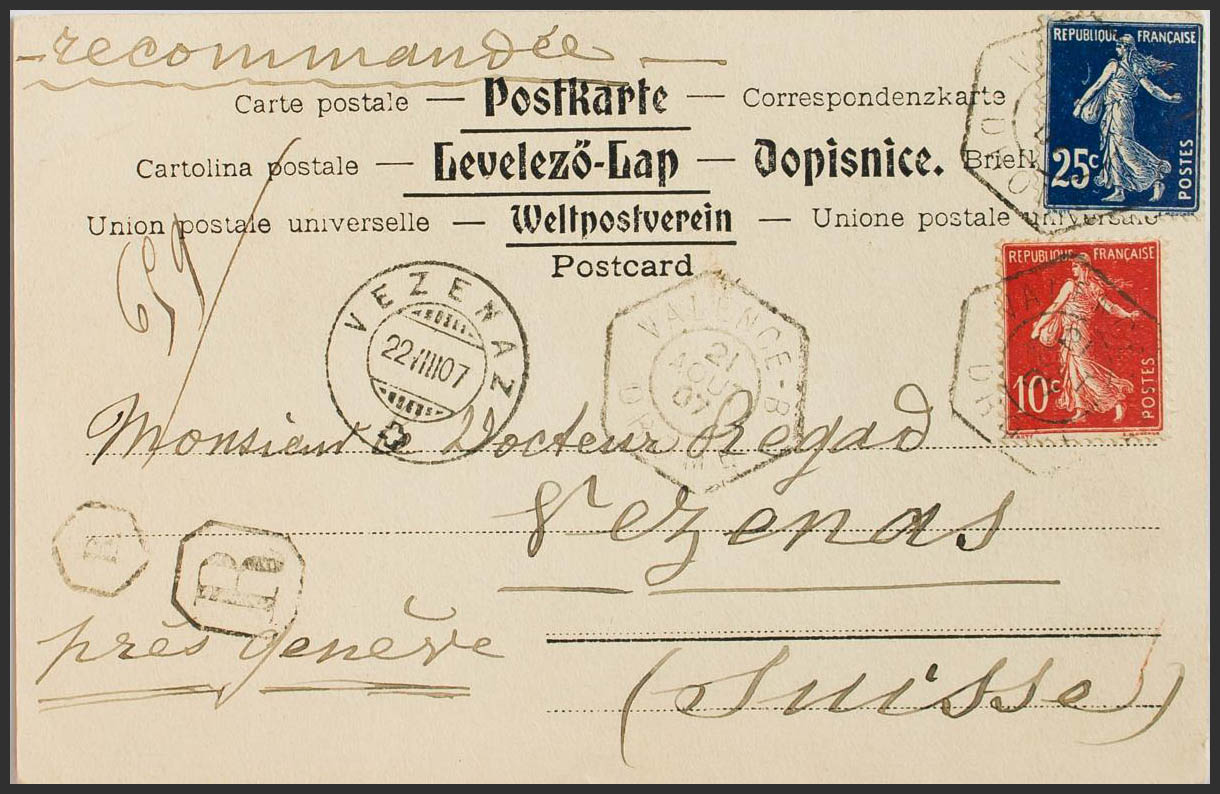 recommandée
Carte postale — Postkarte — Correspondenzkarte
Cartolina postale — Levelező-Lap — Dopisnice.
Union postale universelle — Weltpostverein — Unione postale universale
Postcard
REPUBLIQUE FRANÇAISE
25c
POSTES
REPUBLIQUE FRANÇAISE
10c
POSTES
VEZENAZ
22.VIII.07
VALENCE-B
21
AOUT
07
Monsieur le Docteur Regad
Vezenas
R
R
près Genève
(Suisse)